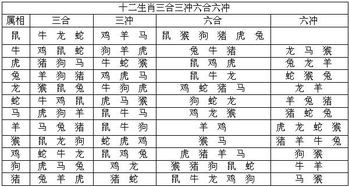 十二生肖三合三冲六合六冲
属相 三合 三冲 六合 六冲
鼠 牛 龙 蛇 鸡 羊 马 鼠 猴 狗 猪 虎 兔
牛 鸡 鼠 蛇 狗 羊 虎 兔 牛 猪 龙 马 猴
虎 猪 狗 马 牛 蛇 猴 鼠 马 鸡 兔 龙 羊
兔 羊 狗 猪 鸡 龙 马 鼠 牛 龙 蛇 猴 兔
龙 猴 鼠 兔 牛 狗 虎 鸡 蛇 猪 马 龙 羊
蛇 牛 鸡 鼠 虎 马 猴 狗 蛇 龙 羊 兔 猪
马 虎 狗 羊 鼠 牛 兔 鸡 龙 猴 猪 蛇 马
羊 马 兔 猪 鼠 牛 狗 羊 鸡 虎 龙 蛇 猴
猴 鼠 龙 狗 蛇 虎 鸡 猴 马 猪 羊 牛 兔
鸡 蛇 牛 龙 鼠 鸡 兔 虎 猪 羊 马 狗 猴
狗 虎 马 兔 鸡 龙 猴 猪 狗 鼠 蛇 牛 羊
猪 兔 羊 虎 猪 蛇 鼠 牛 龙 鸡 狗 马 猴